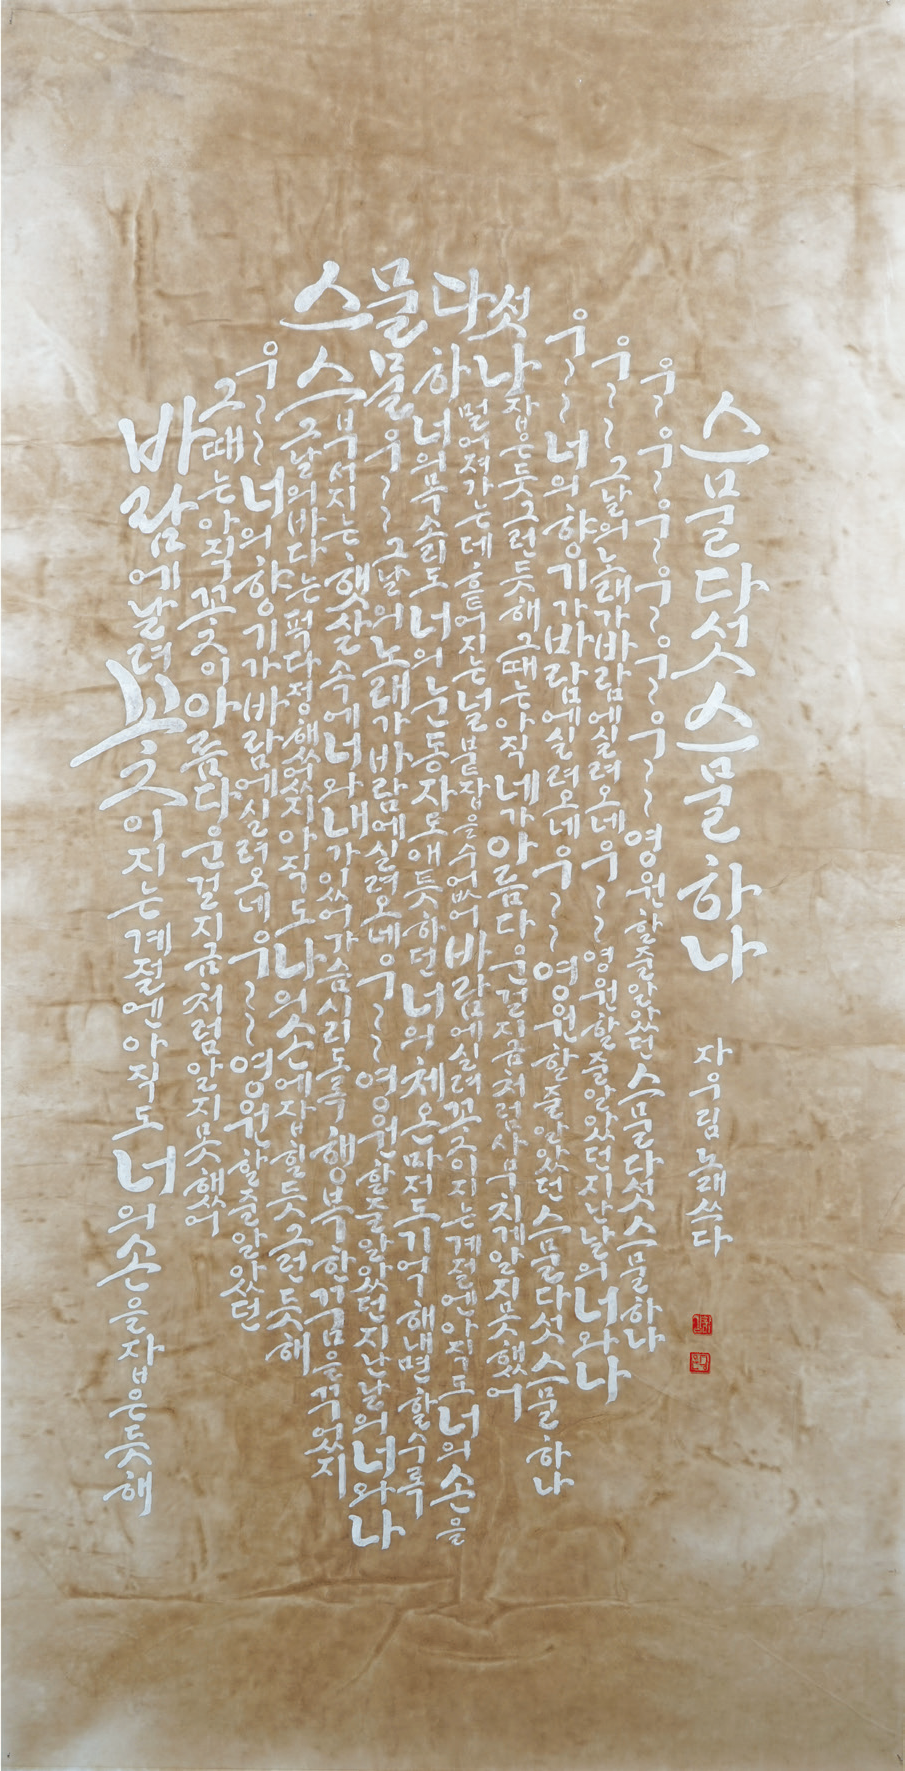 바람에 날려 꽃이 지는 계절엔 아직도 너의 손을 잡은 듯 해
그때는 아직 꽃이 아름다운 걸 지금처럼 알지 못했어
우~~ 너의 향기가 바람에 실려오네 우~~ 영원할 줄 알았던
스물다섯
스물하나
그날의 바다는 퍽 다정했었지 아직도 나의 손에 잡힐 듯 그런 듯 해
부서지는 햇살 속에 너와 내가 있어 가슴 시리도록 행복한 꿈을 꾸었지
우~~ 그날의 노래가 바람에 실려오네 우~~ 영원할 줄 알았던 지난날의 너와 나
너의 목소리도 너의 눈동자도 애틋하던 너의 체온마저도 기억해내면 할수록
멀어져가는데 흩어지는 널 붙잡을 수 없어 바람에 실려 꽃이 지는 계절엔 아직도 너의 손을
잡은 듯 그런 듯 해 그때는 아직 네가 아름다운 걸 지금처럼 사무치게 알지 못했어
우~~ 너의 향기가 바람에 실려오네 우~~ 영원할 줄 알았던 스물다섯 스물하나
우~~ 그날의 노래가 바람에 실려오네 우~~ 영원할 줄 알았던 지난날의 너와 나
우~ 우~ 우~ 우~ 우~ 우~~ 영원할 줄 알았던 스물다섯 스물하나
스물다섯 스물 하나
자우림 노래 쓰다